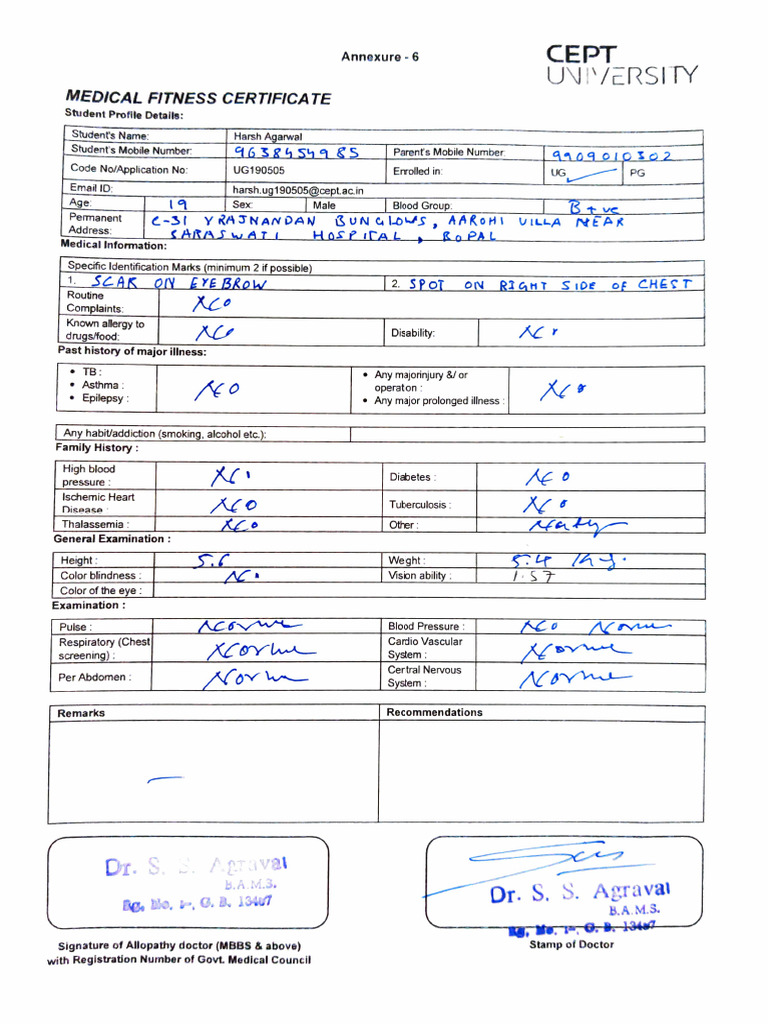 Annexure - 6
CEPT
UNIVERSITY
MEDICAL FITNESS CERTIFICATE
Student Profile Details:
Student's Name: Harsh Agarwal
Student's Mobile Number: 9638454985 Parent's Mobile Number: 9909010302
Code No/Application No: UG190505 Enrolled in: UG PG
Email ID: harsh.ug190505@cept.ac.in
Age: 19 Sex: Male Blood Group: B+ve
Permanent Address: C-31 VRAJNANDAN BUNGLOWS, AAROHI VILLA NEAR
SARASWATI HOSPITAL, BOPAL
Medical Information:
Specific Identification Marks (minimum 2 if possible)
1. SCAR ON EYEBROW 2. SPOT ON RIGHT SIDE OF CHEST
Routine Complaints: NO
Known allergy to drugs/food: NO Disability: No
Past history of major illness:
• TB :
• Asthma :
• Epilepsy :
NO
• Any majorinjury &/ or operaton :
• Any major prolonged illness :
No
Any habit/addiction (smoking, alcohol etc.):
Family History :
High blood pressure : No Diabetes : No
Ischemic Heart Disease : NO Tuberculosis : No
Thalassemia : No Other :
General Examination :
Height : 5.6 Weght : 5.4 Kg.
Color blindness : No Vision ability : 1.57
Color of the eye :
Examination :
Pulse : Blood Pressure : No
Respiratory (Chest screening) : Cardio Vascular System :
Per Abdomen : Central Nervous System :
Remarks Recommendations
—
Dr. S. S. Agraval
B.A.M.S.
Dr. S. S. Agraval
B.A.M.S.
Signature of Allopathy doctor (MBBS & above)
with Registration Number of Govt. Medical Council
Stamp of Doctor